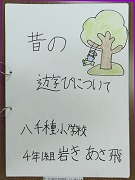 昔の
遊びについて
八千種小学校
4年1組 岩き あさ飛